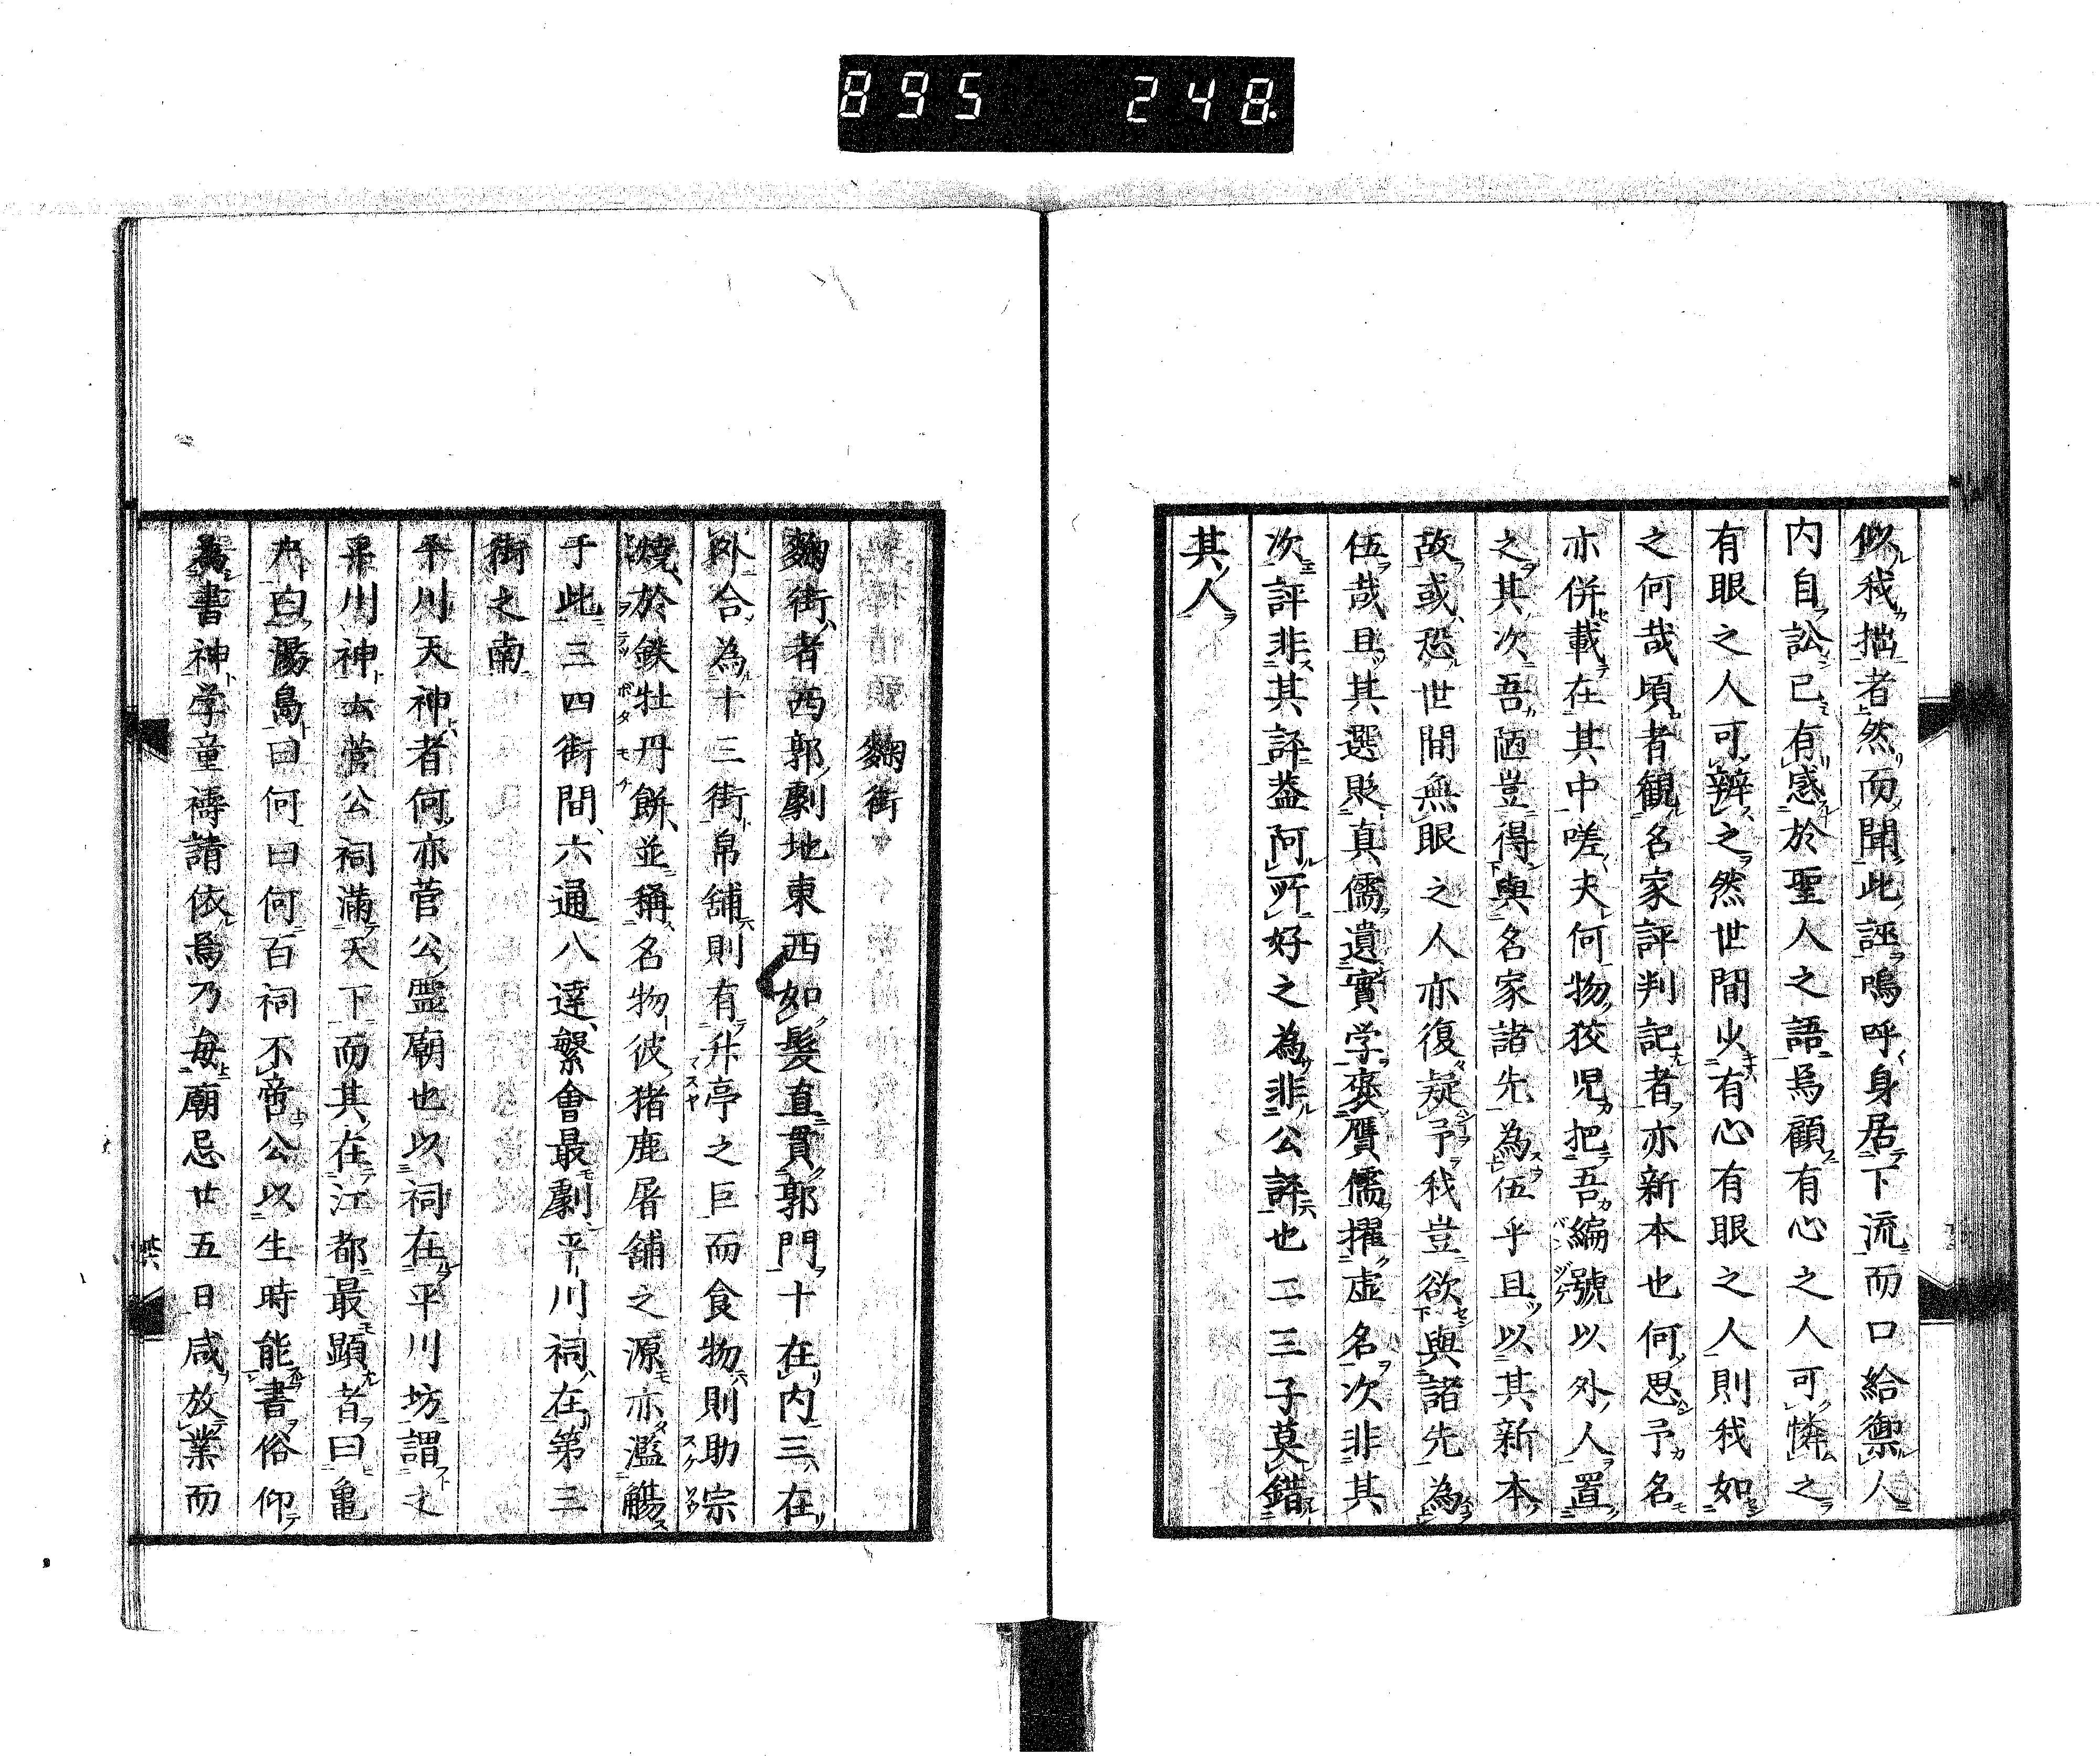 895 248
似我拙者然而聞此誣嗚呼身居下流而口給禦人
内自訟己有感於聖人之語焉顧有心之人可憐之
有眼之人可辨之然世間少有心有眼之人則我如
之何哉頃者観名家評判記者亦新本也何思予名
亦併載在其中嗟夫何物狡児把吾編號以外人置
之其次吾陋豈得與名家諸先為伍乎且以其新本
故或恐世間無眼之人亦復疑予我豈欲與諸先為
伍哉且其選貶真儒遺實学褒贋儒擢虚名次非其
次評非其評蓋阿所好之為非公評也二三子莫錯
其人
麹街
麹街者西郭劇地東西如髮直貫郭門十在内三在
外合為十三街帛舗則有升亭之巨而食物則助宗
燒於鉄牡丹餅並稱名物彼猪鹿屠舗之源亦濫觴
于此三四街間六通八達繁會最劇平川祠在第三
街之南
平川天神者何亦菅公霊廟也以祠在平川坊謂之
平川神云菅公祠満天下而其在江都最顕者曰亀
戸曰湯島曰何曰何百祠不啻公以生時能書俗仰
為書神学童禱請依焉乃毎廟忌廿五日咸放業而